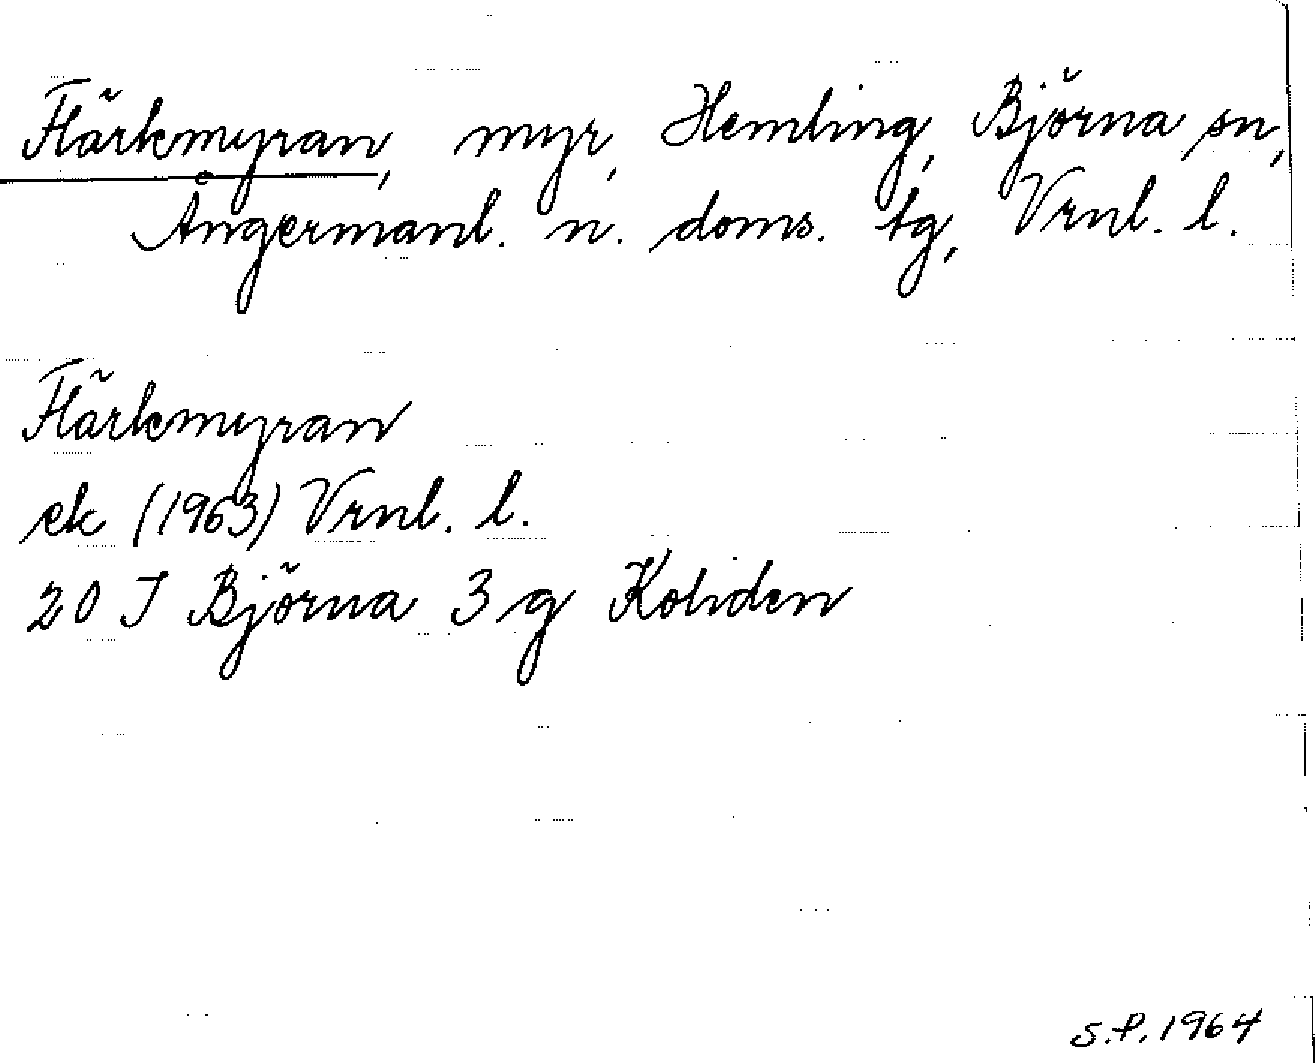 Flärkmyran, myr, Hemling, Björna sn,
Ångermanl. n. doms. tg, Vrnl. l.
Flärkmyran
ek (1963) Vrnl. l.
20 J Björna 3 g Koliden
S.P. 1964